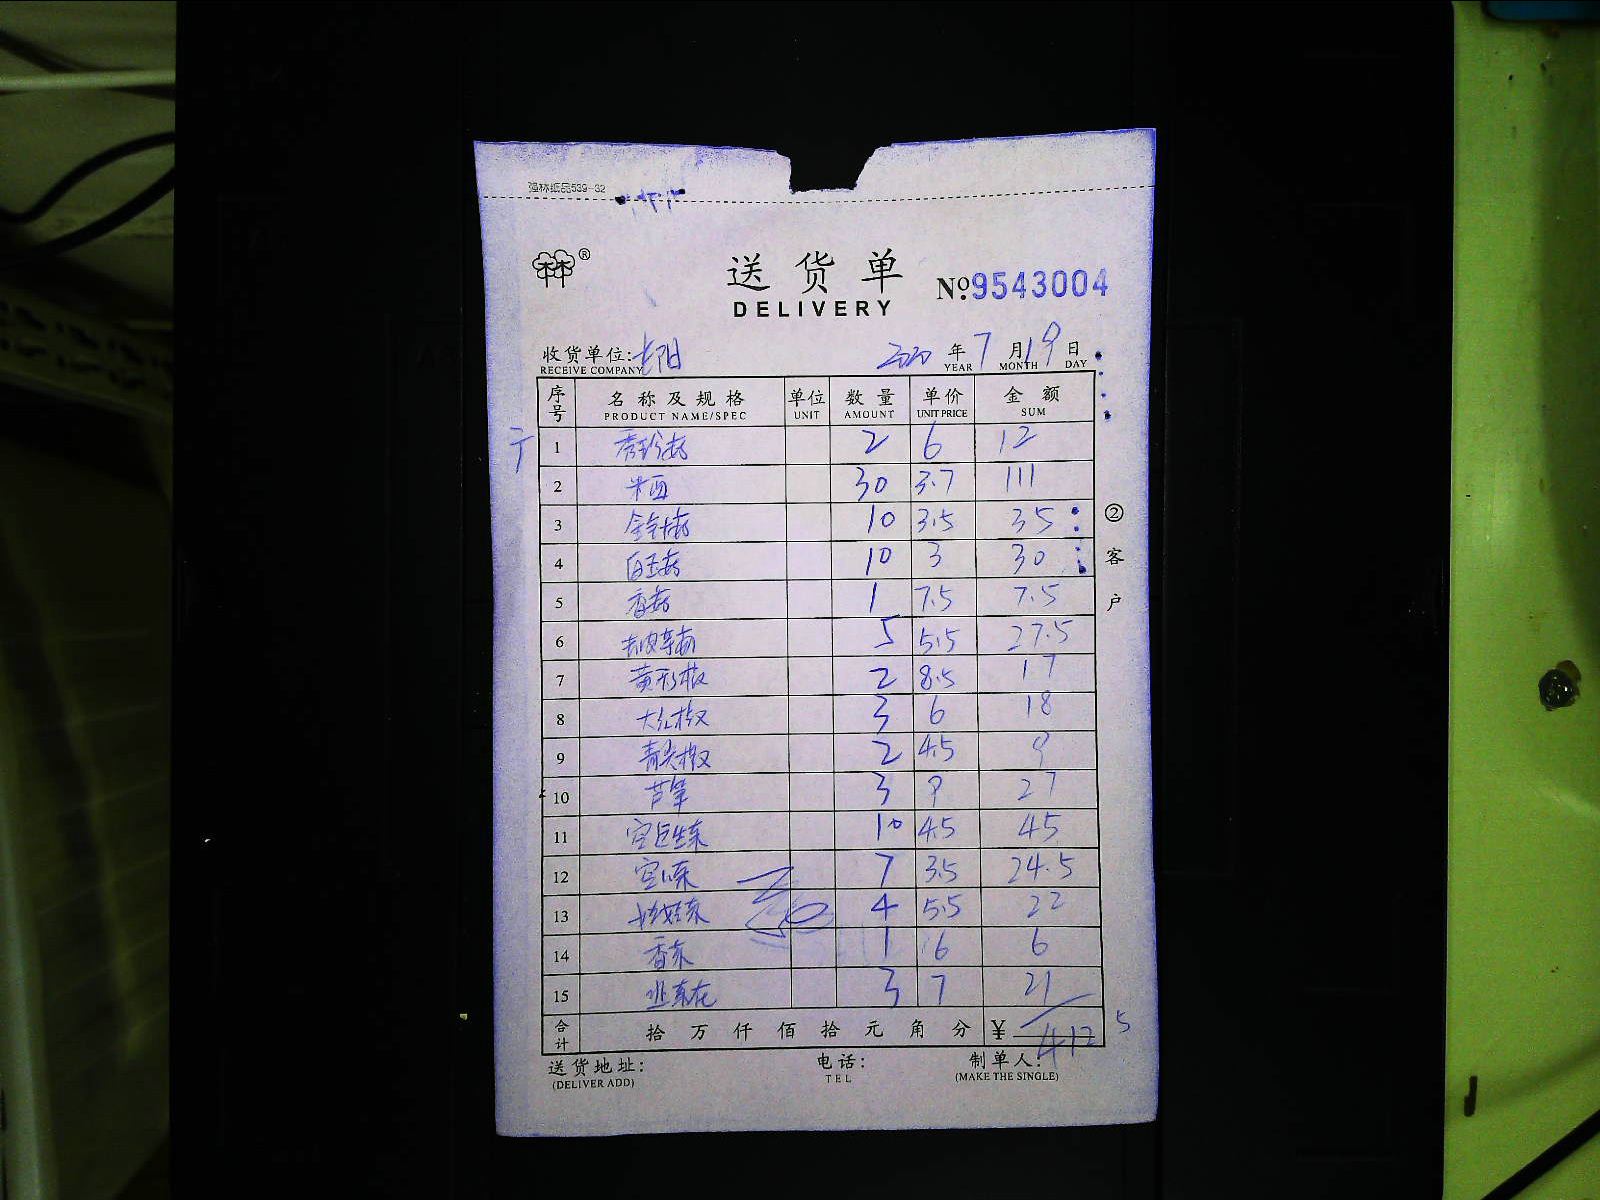 强林纸品539-32
林®
送货单 №9543004
DELIVERY
收货单位: 2020年7月19日
RECEIVE COMPANY YEAR MONTH DAY
序号 名称及规格 单位 数量 单价 金额
PRODUCT NAME/SPEC UNIT AMOUNT UNIT PRICE SUM
1 秀珍菇 2 6 12
2 30 3.7 111
3 金针菇 10 3.5 35
4 白玉菇 10 3 30
5 香菇 1 7.5 7.5
6 5 5.5 27.5
7 黄彩椒 2 8.5 17
8 大红椒 3 6 18
9 青尖椒 2 4.5 9
10 芦笋 3 9 27
11 10 4.5 45
12 7 3.5 24.5
13 4 5.5 22
14 香菜 1 6 6
15 韭菜花 3 7 21
合计 拾万仟佰拾元角分 ¥ 412.5
送货地址: 电话: 制单人:
(DELIVER ADD) TEL (MAKE THE SINGLE)
②客户